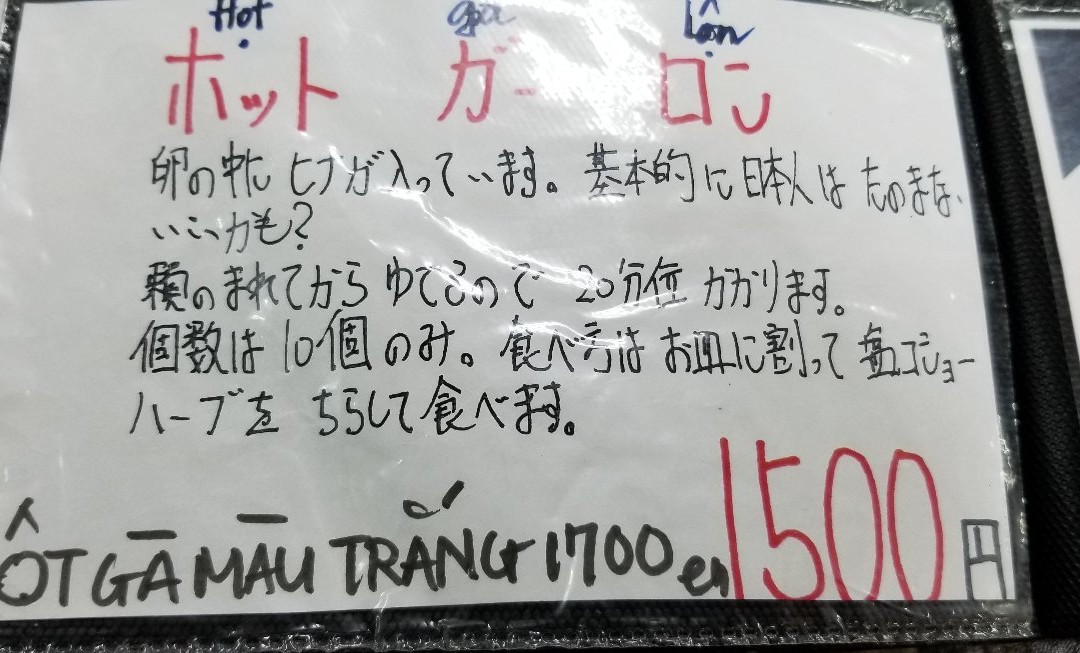 Hột gà lộn
ホット ガー ロン
卵の中に ヒナが入っています。基本的に日本人は たのまな、
いいかも？
頼のまれてから ゆでるので 20分位 かかります。
個数は 10個 のみ。食べ方は お皿に割って 塩コショー
ハーブを ちらして食べます。
ỘT GÀ MÀU TRẮNG 1700 en
1500円